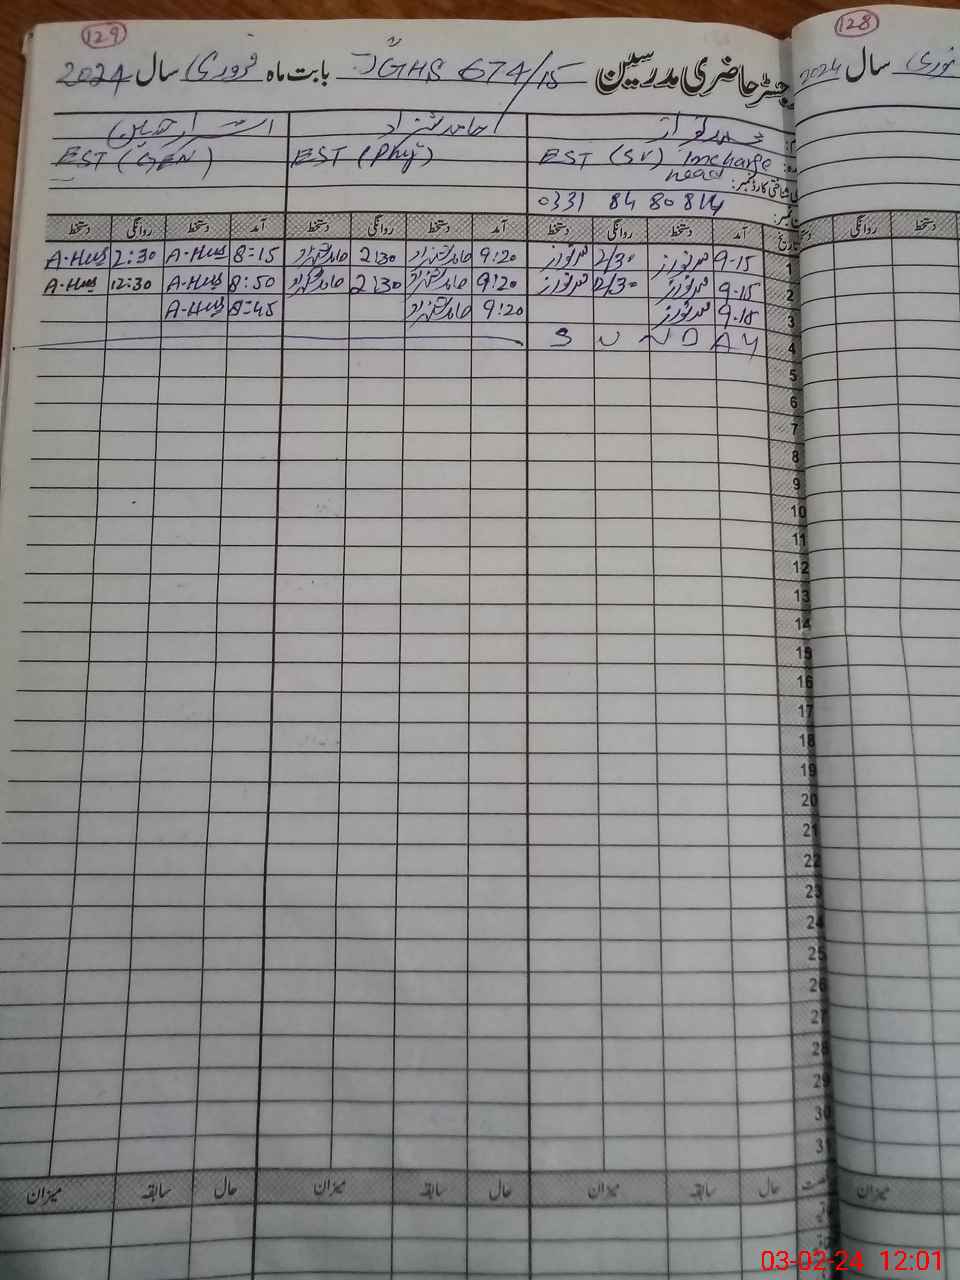 129
رجسٹر حاضری مدرسین GHS 674/15 بابت ماہ فروری سال 2024
محمد نواز
حامد شہزاد
EST (SV) Incharge head
EST (Phy)
EST (GEN)
0331 84 80 814
آمد دستخط روانگی دستخط آمد دستخط روانگی دستخط آمد دستخط روانگی دستخط
1 9-15 محمد نواز 2/30 محمد نواز 9:20 حامد شہزاد 2130 حامد شہزاد 8=15 A-Hus 2:30 A-Hus
2 9-15 محمد نواز 2/30 محمد نواز 9:20 حامد شہزاد 2130 حامد شہزاد 8:50 A-Hus 12:30 A-Hus
3 9-15 محمد نواز 9:20 حامد شہزاد 8=45 A-Hus
4 S U N D A Y
5
6
7
8
9
10
11
12
13
14
15
16
17
18
19
20
21
22
23
24
25
26
27
28
29
30
31
حال سابقہ میزان حال سابقہ میزان حال سابقہ میزان
128
سال 2024
روانگی دستخط
میزان
03-02-24 12:01